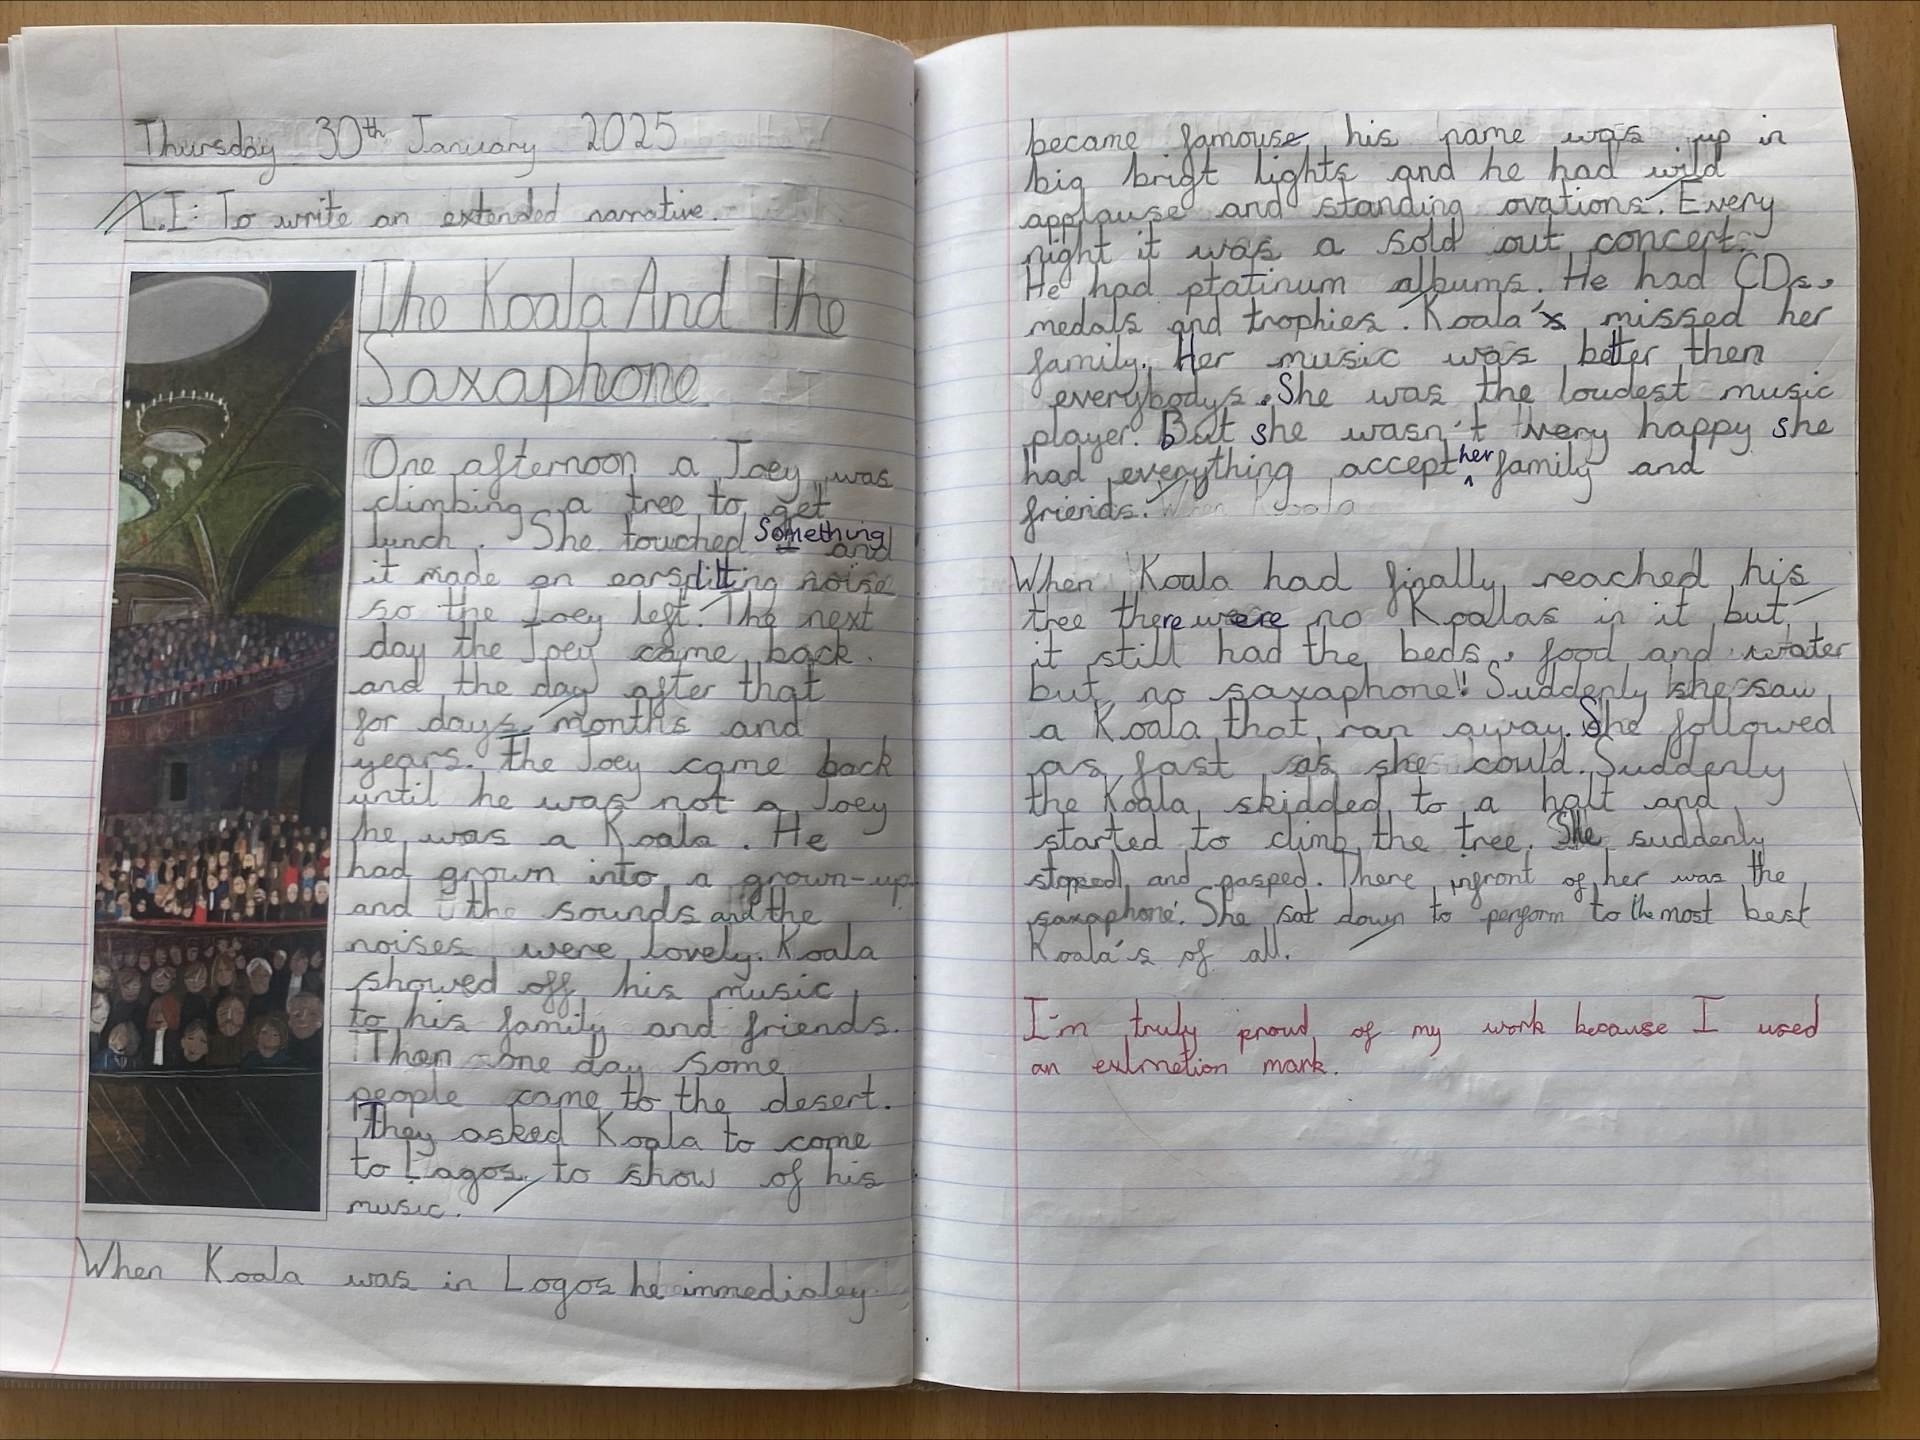 Thursday 30th January 2025
L.I: To write an extended narrative.
The Koala And The
Saxaphone
One afternoon a Joey was
climbing a tree to get
lunch. She touched Something and
it made an earsplitting noise
so the Joey left. The next
day the Joey came back.
and the day after that
for days, months and
years. The Joey came back
until he was not a Joey
he was a Koala. He
had grown into a grown-up
and the sounds and the
noises were lovely. Koala
showed off his music
to his family and friends.
Then one day some
people came to the desert.
They asked Koala to come
to Lagos to show of his
music.
When Koala was in Logos he immedialey
became famouse his name was up in
big brigt lights and he had wild
applause and standing ovations. Every
night it was a sold out concert.
He had platinum albums. He had CDs,
medals and trophies. Koala missed her
family. Her music was better then
everybodys. She was the loudest music
player. But she wasn't very happy she
had everything accept her family and
friends. When Koala
When Koala had finally reached his
tree there were no Koalas in it but
it still had the beds, food and water
but no saxaphone! Suddenly she saw
a Koala that ran away. She followed
as fast as she could. Suddenly
the Koala skidded to a halt and
started to climb the tree. She suddenly
stopped and gasped. There infront of her was the
saxaphone. She sat down to perform to the most best
Koala's of all.
I'm truly proud of my work because I used
an exlmetion mark.